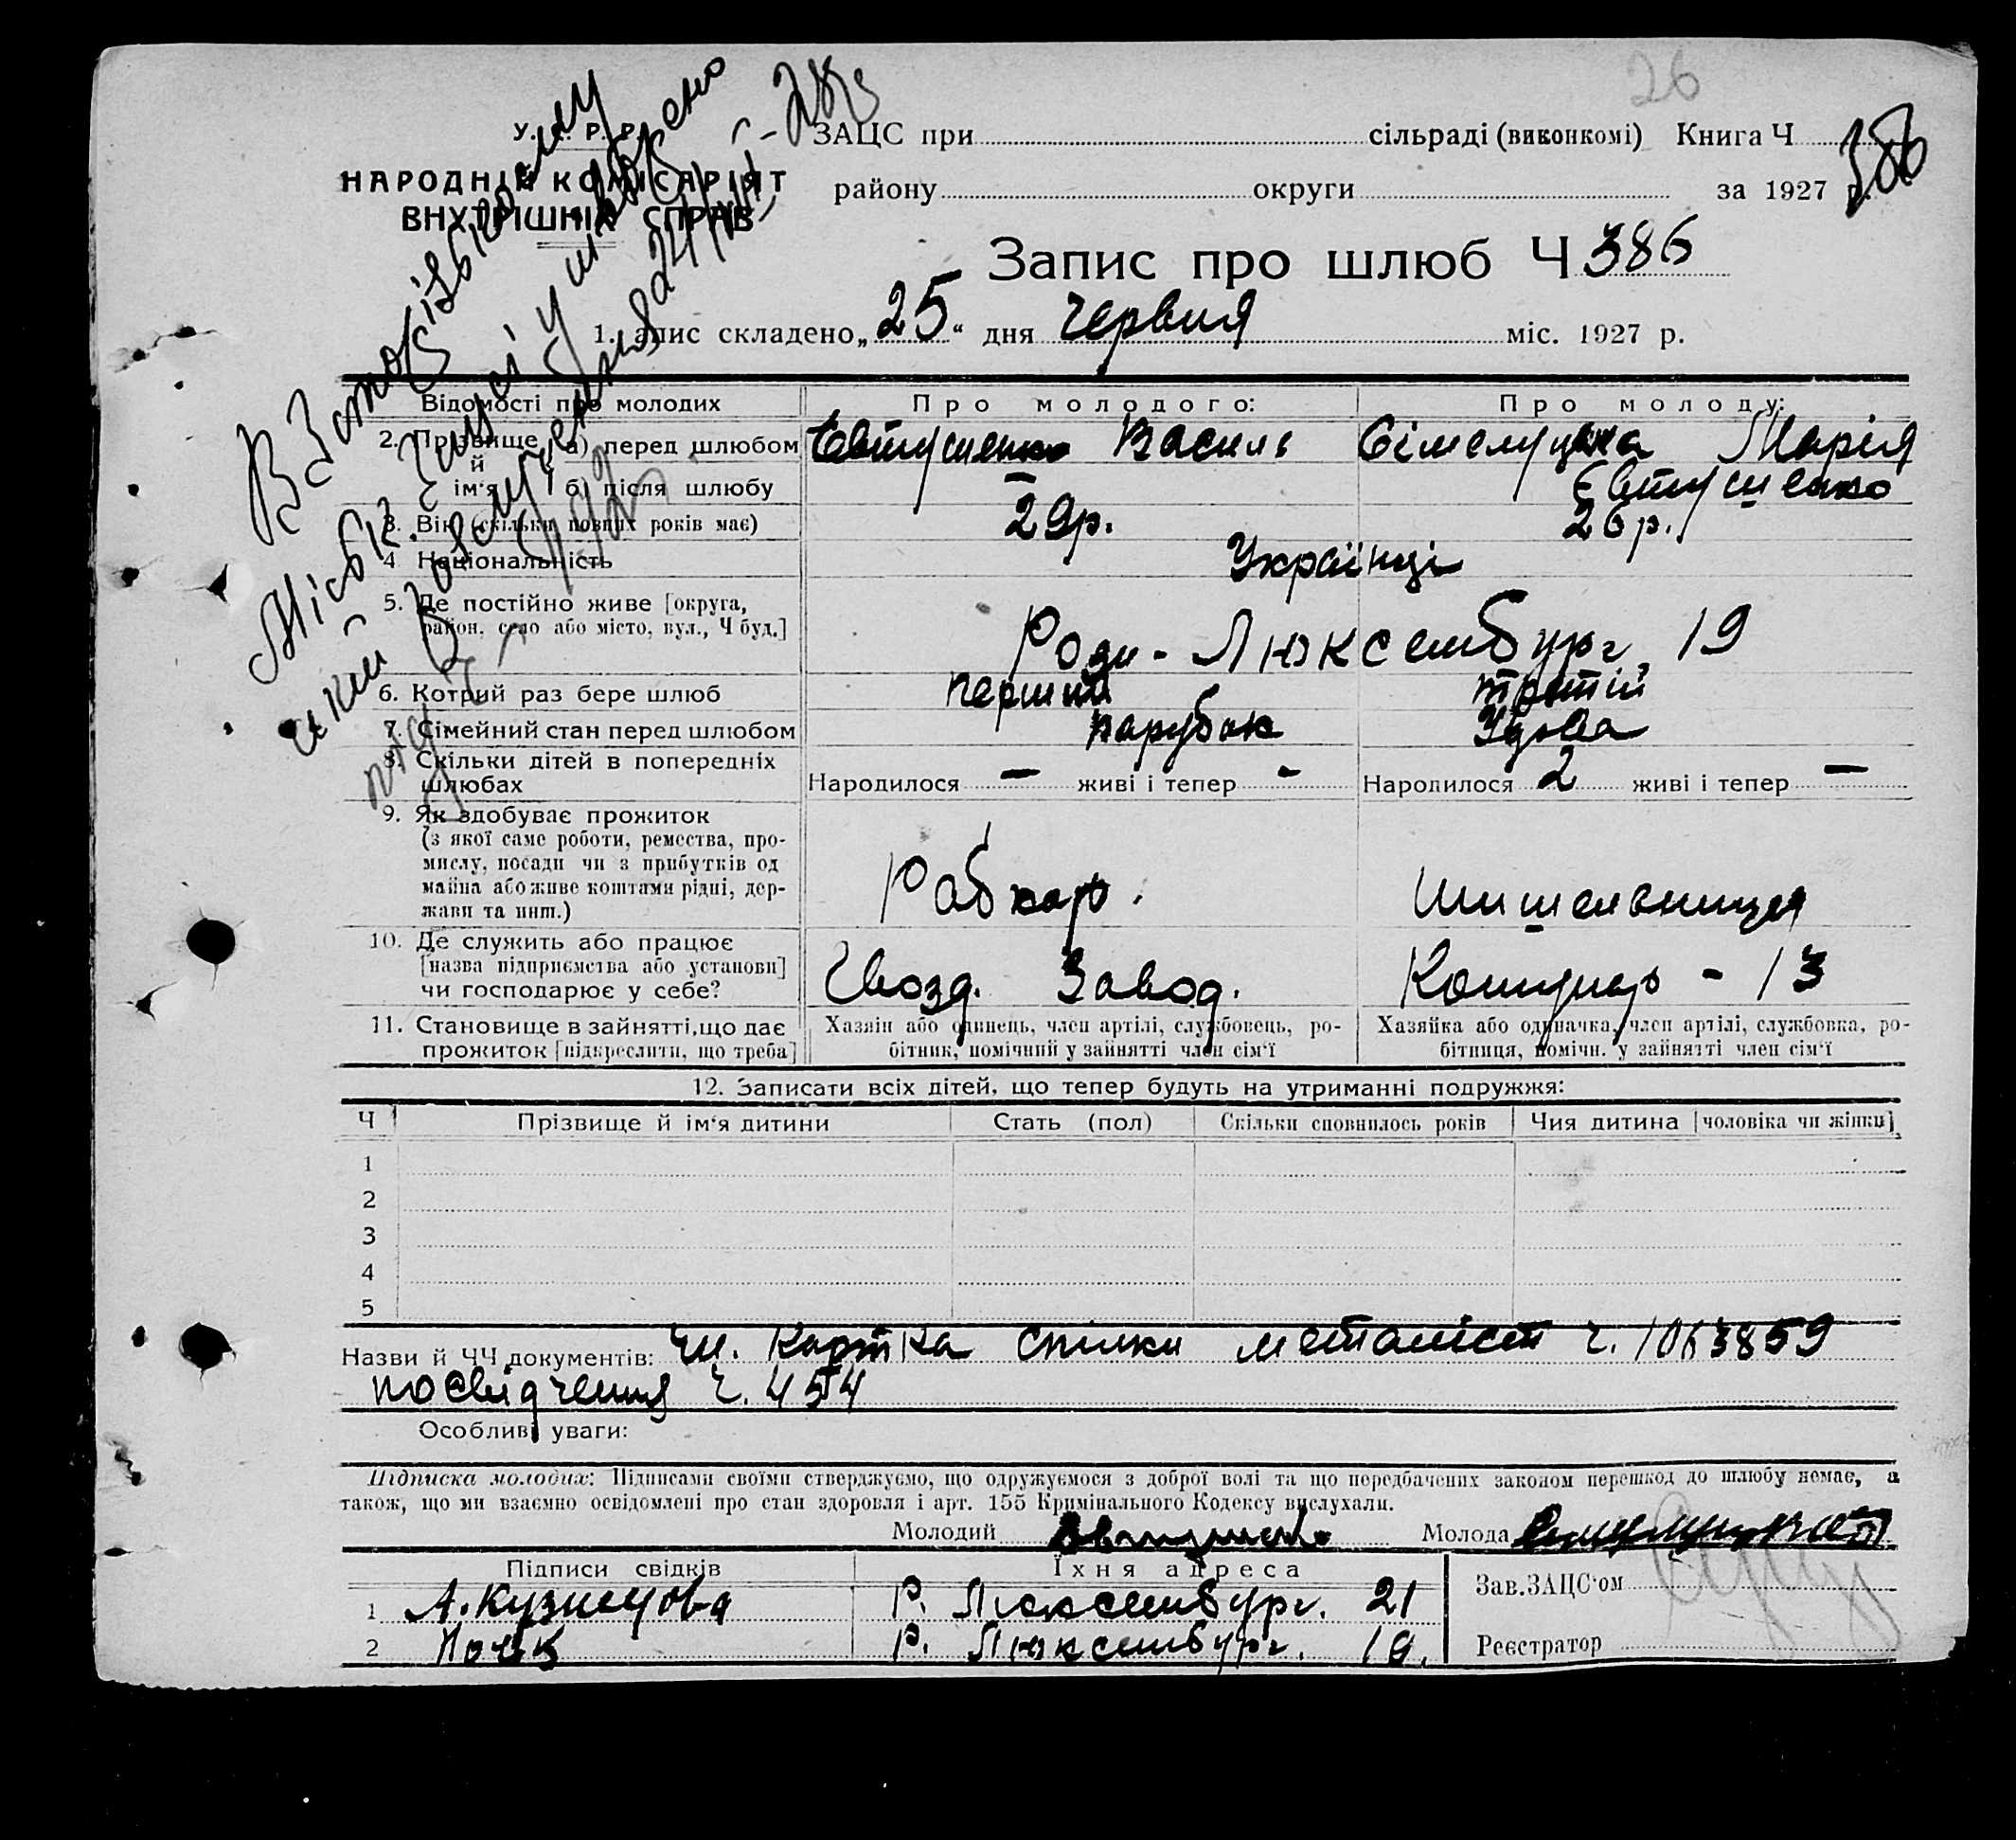 26
У. С. Р. Р.
НАРОДНІЙ КОМІСАРІЯТ
ВНУТРІШНІХ СПРАВ
ЗАЦС при сільраді (виконкомі) Книга Ч
району округи за 1927 р.
386
Запис про шлюб Ч 386
1. Запис складено „25“ дня червня міс. 1927 р.
В Запорізькому
Міськ. Загсі у
Відомості про молодих Про молодого: Про молоду:
2. Прізвище й ім'я а) перед шлюбом Євтушенко Василь Марія
б) після шлюбу — Євтушенко
3. Вік (скільки повних років має) 29р. 26р.
4 Національність Українці
5. Де постійно живе [округа, район, село або місто, вул., Ч буд.] Рози-Люксембург 19
6. Котрий раз бере шлюб перший третій
7. Сімейний стан перед шлюбом парубок Удова
8. Скільки дітей в попередніх шлюбах Народилося — живі і тепер - Народилося 2 живі і тепер —
9. Як здобуває прожиток
(з якої саме роботи, ремества, про-
мислу, посади чи з прибутків од
майна або живе коштами рідні, дер-
жави та инш.) Робкор.
10. Де служить або працює
[назва підприємства або установи]
чи господарює у себе? Гвозд. Завод. - 13
11. Становище в зайнятті, що дає Хазяїн або одинець, член артілі, службовець, ро- Хазяйка або одиначка, член артілі, службовка, ро-
прожиток [підкреслити, що треба] бітник, помічний у зайнятті член сім'ї бітниця, помічн. у зайнятті член сім'ї
12. Записати всіх дітей, що тепер будуть на утриманні подружжя:
Ч Прізвище й ім'я дитини Стать (пол) Скільки сповнилось років Чия дитина [чоловіка чи жінки]
1
2
3
4
5
Назви й ЧЧ документів: Чл. Картка спілки металіст ч. 1063859
посвідчення ч. 454
Особливі уваги:
Підписка молодих: Підписами своїми стверджуємо, що одружуємося з доброї волі та що передбачених законом перешкод до шлюбу немає, а
також, що ми взаємно освідомлені про стан здоровля і арт. 155 Кримінального Кодексу вислухали.
Молодий Молода
Підписи свідків Їхня адреса Зав. ЗАЦС'ом
1 А. Кузнецова Р. Люксембург. 21
2 Р. Люксембург. 19. Реєстратор